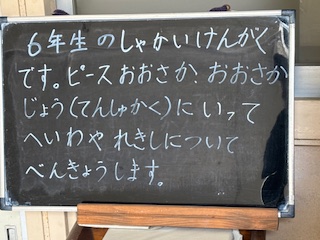 6年生のしゃかいけんがく
です。ピースおおさか、おおさか
じょう(てんしゅかく)にいって
へいわや れきしについて
べんきょうします。